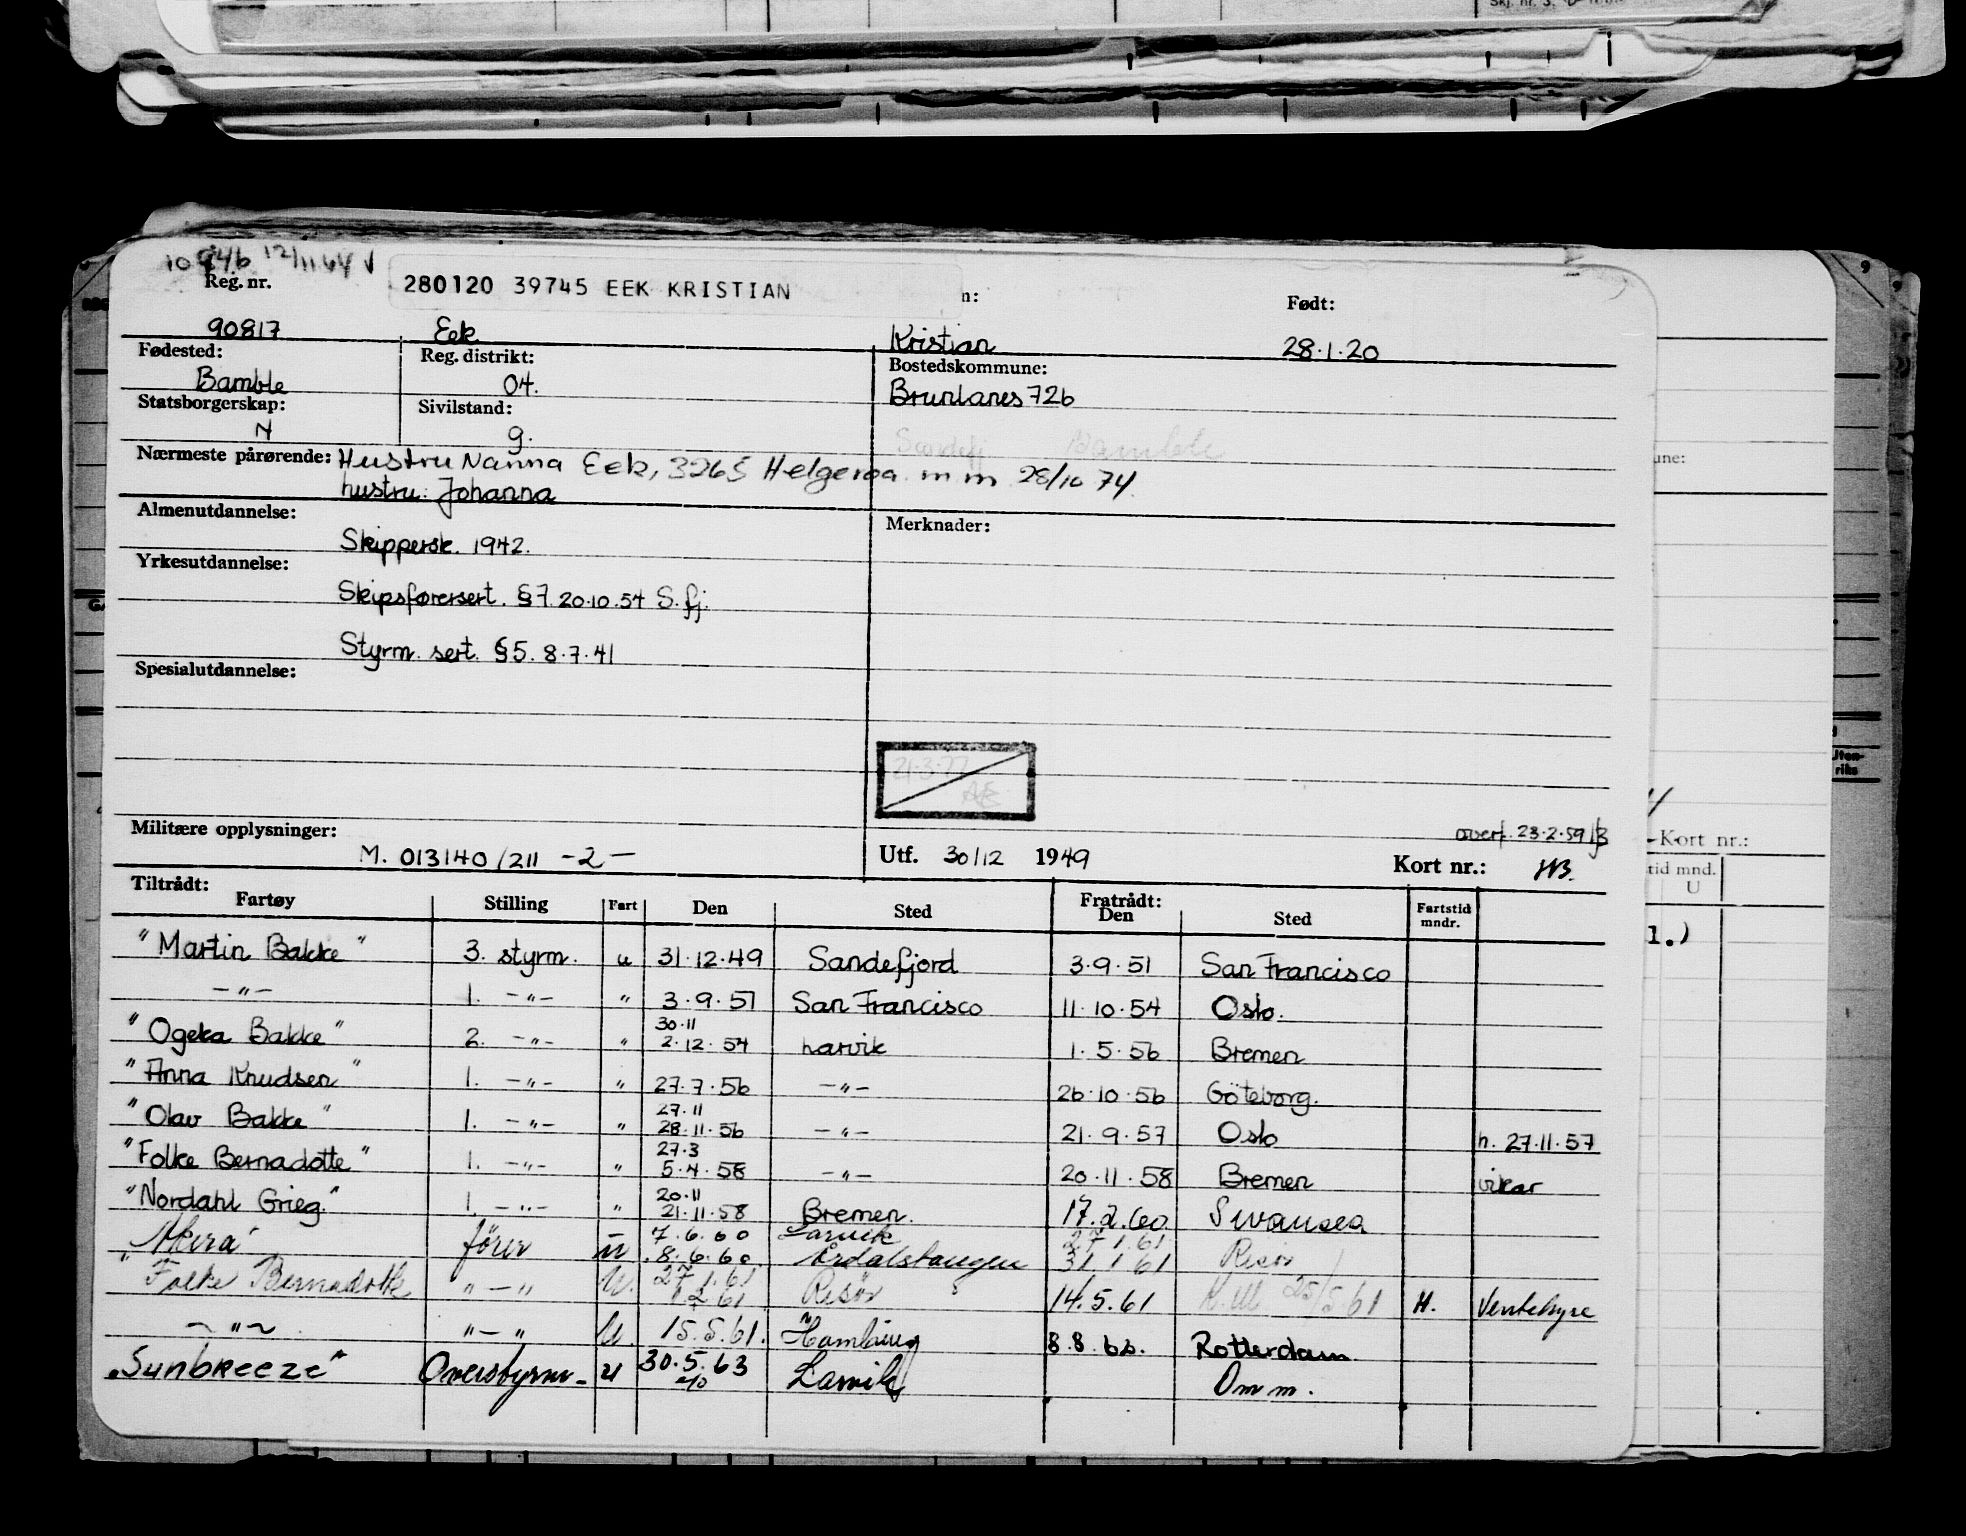 10946 12/11 64 V
Reg. nr. 280120 39745 EEK KRISTIAN n: Født:
90817 Eek Kristian 28.1.20
Fødested: Reg. distrikt: Bostedskommune:
Bamble 04. Brunlanes 726
Statsborgerskap: Sivilstand:
N g. Sandefj Bamble
Nærmeste pårørende: Hustru Nanna Eek, 3265 Helgeroa m m 28/10 74
hustru: Johanna
Almenutdannelse: Merknader:
Skippersk. 1942.
Yrkesutdannelse:
Skipsførersert. §7. 20.10.54 S.fj.
Styrm. sert. §5. 8.7.41
Spesialutdannelse:
21.3.77
AE
Militære opplysninger: overf. 23.2.59
M. 013140/211 -2- Utf. 30/12 1949 Kort nr.:
Tiltrådt: Fratrådt:
Fartøy Stilling Fart Den Sted Den Sted Fartstid mndr.
"Martin Bakke" 3. styrm. u 31.12.49 Sandefjord 3.9.51 San Francisco
-"- 1. -"- " 3.9.51 San Francisco 11.10.54 Oslo.
30.11
"Ogeka Bakke" 2. -"- " 2.12.54 Larvik 1.5.56 Bremen
"Anna Knudsen" 1. -"- " 27.7.56 -"- 26.10.56 Göteborg.
27.11
"Olav Bakke" 1. -"- " 28.11.56 -"- 21.9.57 Oslo h. 27.11.57
27.3
"Folke Bernadotte" 1. -"- " 5.4.58 -"- 20.11.58 Bremen vikar
20.11
"Nordahl Grieg" 1. -"- " 21.11.58 Bremen. 17.2.60 Swansea
7.6.60 Larvik 27.1.61
"Akera" fører u 8.6.60 Årdalstangen 31.1.61 Risør
27.1.61
"Folke Bernadotte " - " U. 1.2.61 Risør 14.5.61 25/5.61 H. Ventehyre
~ " ~ " - " U. 15.5.61. Hamburg 8.8.62. Rotterdam
"Sunbreeze" Overstyrm. u 30.5.63 Larvik Omm.
une:
Kort nr.:
tid mnd.
U
1.)
Uten-
riks
9